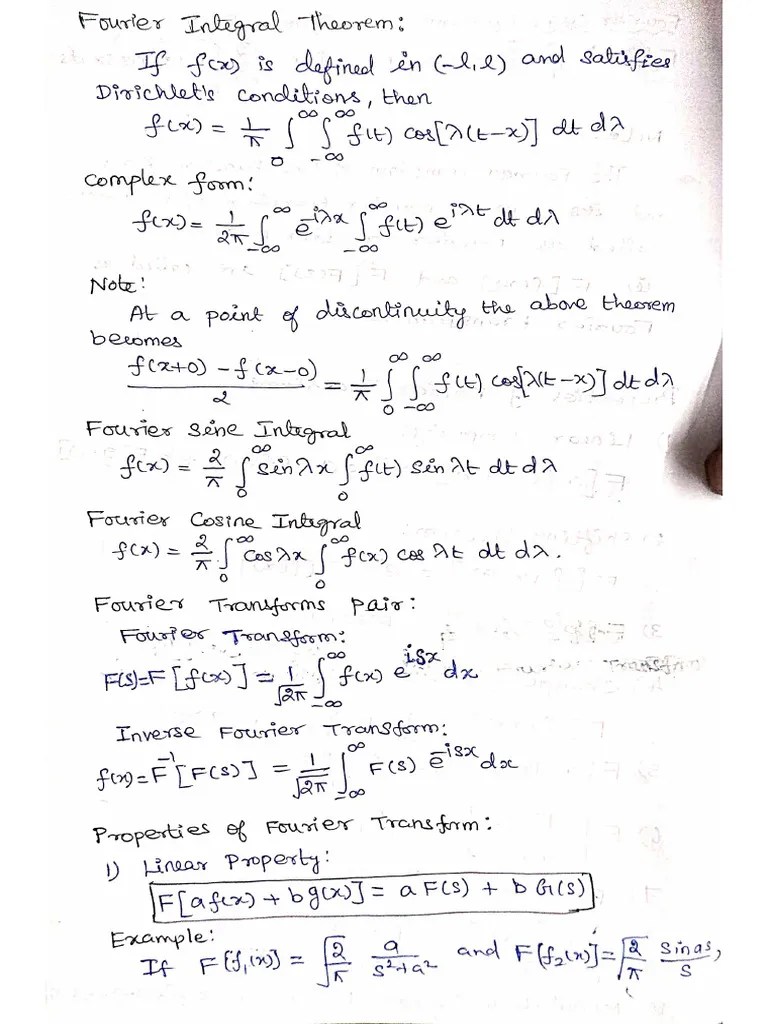 Fourier Integral Theorem:
If f(x) is defined in (-l, l) and satisfies
Dirichlet's conditions, then
f(x) = 1/π ∫_0^∞ ∫_{-∞}^∞ f(t) cos[λ(t-x)] dt dλ
Complex form:
f(x) = 1/2π ∫_{-∞}^∞ e^{-iλx} ∫_{-∞}^∞ f(t) e^{iλt} dt dλ
Note:
At a point of discontinuity the above theorem
becomes
(f(x+0) - f(x-0))/2 = 1/π ∫_0^∞ ∫_{-∞}^∞ f(t) cos[λ(t-x)] dt dλ
Fourier Sine Integral
f(x) = 2/π ∫_0^∞ sin λx ∫_0^∞ f(t) sin λt dt dλ
Fourier Cosine Integral
f(x) = 2/π ∫_0^∞ cos λx ∫_0^∞ f(x) cos λt dt dλ.
Fourier Transforms Pair:
Fourier Transform:
F(s) = F[f(x)] = 1/√2π ∫_{-∞}^∞ f(x) e^{isx} dx
Inverse Fourier Transform:
f(x) = F^{-1}[F(s)] = 1/√2π ∫_{-∞}^∞ F(s) e^{-isx} dx
Properties of Fourier Transform:
1) Linear Property:
F[a f(x) + b g(x)] = a F(s) + b G(s)
Example:
If F[f₁(x)] = √(2/π) a/(s²+a²) and F[f₂(x)] = √(2/π) sin as/s,